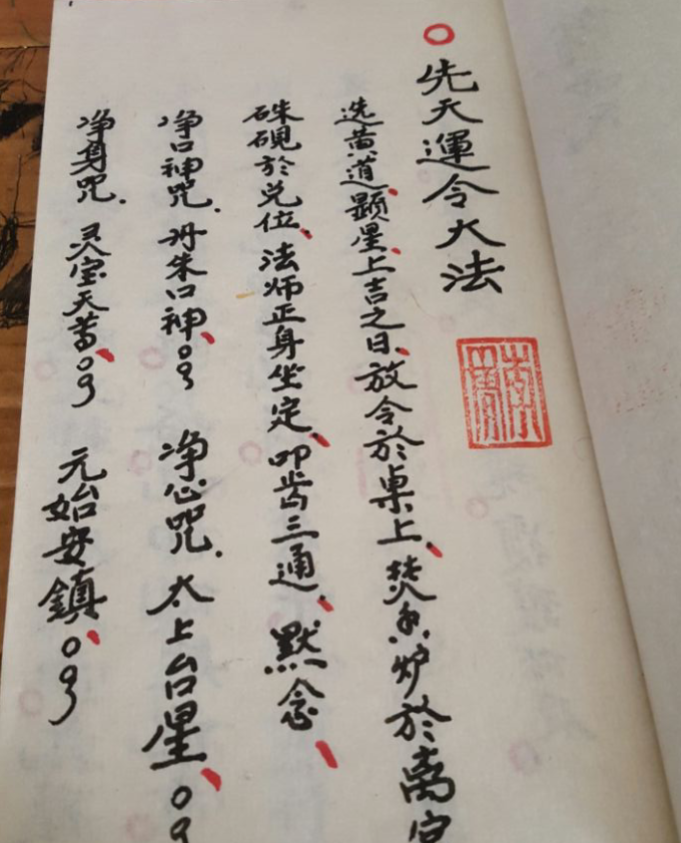 先天運令大法
选黄道、顕星、上吉之日、放令於桌上、焚香炉於离宫
硃硯於兑位、法师正身坐定、叩齿三通、默念、
净口神咒. 丹朱口神、净心咒. 太上台星、
净身咒. 灵宝天尊、元始安鎮、